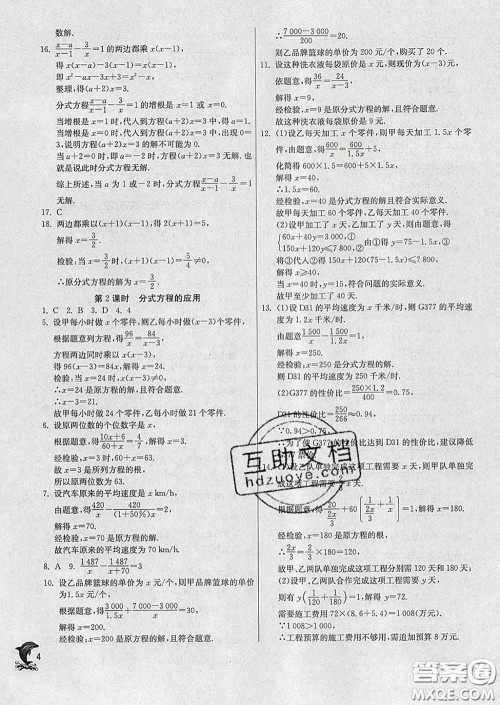 数解.
16. (x-a)/(x-1)-3/x=1的两边都乘x(x-1),
得x(x-a)-3(x-1)=x(x-1),
即x²-ax-3x+3=x²-x.
整理,得(a+2)x=3.
分式方程(x-a)/(x-1)-3/x=1的增根是x=1或x=0.
当增根是x=1时,代入到方程(a+2)x=3中,得a=1;
当增根是x=0时,代入到方程(a+2)x=3中,得0=3,说明方程(a+2)x=3的解不可能为0.
当a+2=0时,即当a=-2时,方程(a+2)x=3无解.也就是说此时分式方程无解.
综上所述,当a为1或-2时,分式方程(x-a)/(x-1)-3/x=1无解.
17. C
18. 两边都乘以(x+1)(x-1),得x(x+1)-(x+1)(x-1)=
解得x=3/2.
检验:当x=3/2时,(x+1)(x-1)=5/4≠0,
∴原分式方程的解为x=3/2.
第2课时 分式方程的应用
1. C 2. B 3. D 4. 4
5. 设甲每小时做x个零件,则乙每小时做(x-3)个零件,
根据题意列方程,得96/x=84/(x-3).
方程两边同时乘以x(x-3),
得96(x-3)=84x,解得x=24.
检验:当x=24时,x(x-3)≠0,
∴x=24是原方程的解,且符合题意.
∴x-3=21.
故甲每小时做24个零件,乙每小时做21个零件.
6. 设原两位数的个位数字是x,
根据题意,得(10x+6)/(60+x)=4/7,解得x=3.
经检验,x=3是原方程的解,且符合题意.
所以原两位数为63.
7. 设汽车原来的平均速度是x km/h,
由题意得420/x-420/((1+50%)x)=2.
解得x=70.
经检验:x=70是原方程的解.
故汽车原来的平均速度为70 km/h.
8. A 9. 1 487/x-1 487/(x+70)=3
10. 设乙品牌篮球的单价为x元/个,则甲品牌篮球的单价为1.5x元/个,
根据题意,得3 000/1.5x=
解得x=200.
经检验:x=200是原方程的解,且符合题意.
∴(7 000-3 000)/200=20.
则乙品牌篮球的单价为200元/个,购买了20个.
11. 设这种洗衣液每袋原价是x元,则现价为(x-3)元.
依题意,得36/x=24/(x-3).
解得x=9.
经检验,x=9是分式方程的解,且符合题意.
故这种洗衣液每袋原价是9元.
12. (1)设乙每天加工x个零件,则甲每天加工1.5x个零件.由题意,得600/x=600/1.5x+5.
化简得600×1.5=600+5×1.5x.
解得x=40.
∴1.5x=60.
经检验,x=40是分式方程的解且符合实际意义.
故甲每天加工60个零件,乙每天加工40个零件.
(2)设甲加工了x天,乙加工了y天,则由题意得
60x+40y=3 000,①
150x+120y≤7 800,②
由①得y=75-1.5x③
将③代入②得150x+120(75-1.5x)≤7 800.
解得x≥40.
当x=40时,y=15,符合问题的实际意义.
故甲至少加工了40天.
13. (1)设D31的平均速度为x千米/时,则G377的平均速度为1.2x千米/时.
由题意,得1 500/x-1 500/1.2x=1.
解得x=250.
经检验,x=250是分式方程的解.
则D31的平均速度250千米/时.
(2)G377的性价比=(250×1.2)/400=0.75,
D31的性价比=250/266≈0.94,
∵0.94>0.75,
∴为了使G377的性价比达到D31的性价比,建议降低
票价
14.
由题意得
根据题意,得
解得x=180.
经检验,x=180是原方程的根.
∴2x/3=2/3×180=120.
故甲、乙两队单独完成这项工程分别需120天和180天.
(2)设甲、乙两队合作完成这项工程需要y天,
则有y(1/120+1/180)=1,解得y=72.
需要施工费用72×(8.6+5.4)=1 008(万元).
∵1 008>1 000,
∴工程预算的施工费用不够用,需追加预算8万元.
4
互助文档
hdzuoye.com
答案圈
MXQE.COM